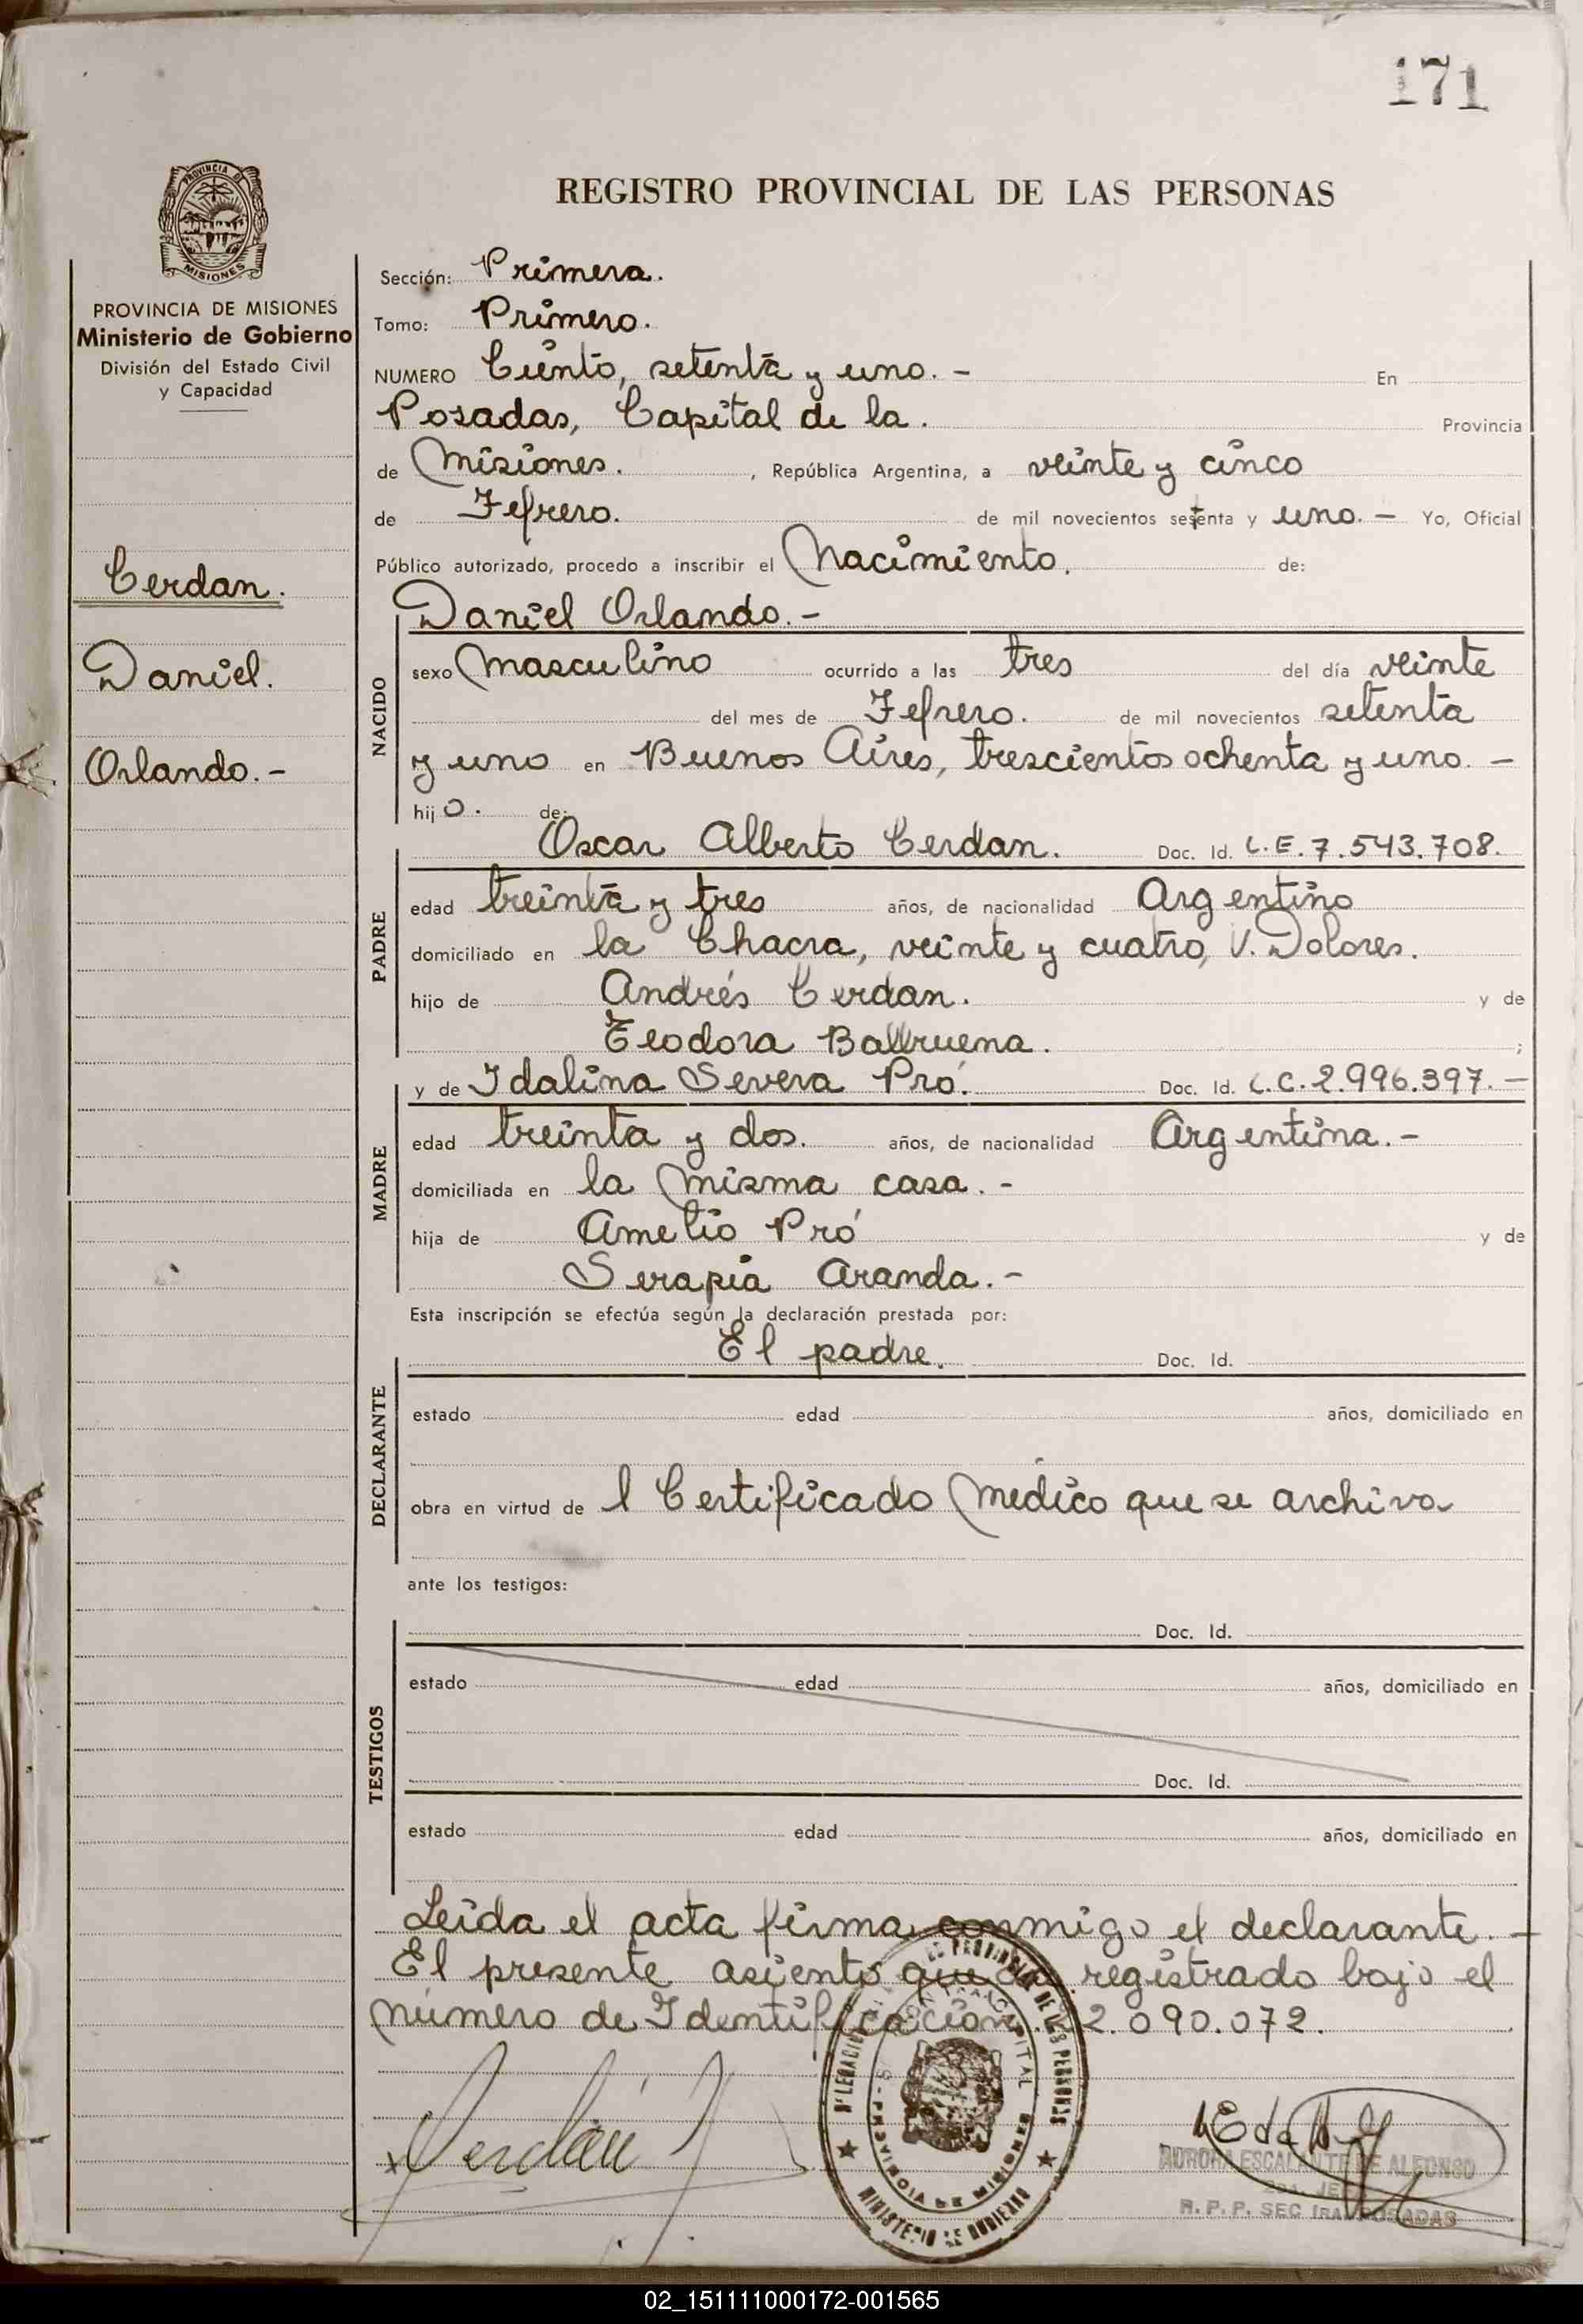 171
PROVINCIA DE
MISIONES
REGISTRO PROVINCIAL DE LAS PERSONAS
PROVINCIA DE MISIONES
Ministerio de Gobierno
División del Estado Civil
y Capacidad
Cerdan.
Daniel.
Orlando.-
Sección: Primera.
Tomo: Primero.
NUMERO Ciento, setenta y uno. - En
Posadas, Capital de la. Provincia
de Misiones. , República Argentina, a veinte y cinco
de Febrero. de mil novecientos setenta y uno. - Yo, Oficial
Público autorizado, procedo a inscribir el Nacimiento. de:
Daniel Orlando.-
NACIDO
sexo Masculino ocurrido a las tres del día veinte
del mes de Febrero. de mil novecientos setenta
y uno en Buenos Aires, trescientos ochenta y uno. -
hijo. de:
Oscar Alberto Cerdan. Doc. Id. L.E.7.543.708.
PADRE
edad treinta y tres años, de nacionalidad Argentino
domiciliado en la Chacra, veinte y cuatro, V. Dolores.
hijo de Andrés Cerdan. y de
Teodora ;
y de Idalina Severa Pró. Doc. Id. L.C.2.996.397. -
MADRE
edad treinta y dos. años, de nacionalidad Argentina.-
domiciliada en la misma casa.-
hija de Amelio Pró y de
Serapia Aranda.-
Esta inscripción se efectúa según la declaración prestada por:
El padre. Doc. Id.
DECLARANTE
estado edad años, domiciliado en
obra en virtud de l Certificado Medico que se archiva
ante los testigos:
Doc. Id.
TESTIGOS
estado edad años, domiciliado en
Doc. Id.
estado edad años, domiciliado en
Leida el acta firma conmigo el declarante. -
El presente asiento queda registrado bajo el
número de Identificación. 22.090.072.
Cerdán
AURORA ESCALANTE DE ALFONSO
R. P. P. SEC 1ra. POSADAS
PROVINCIA DE MISIONES
MINISTERIO DE GOBIERNO
02_151111000172-001565